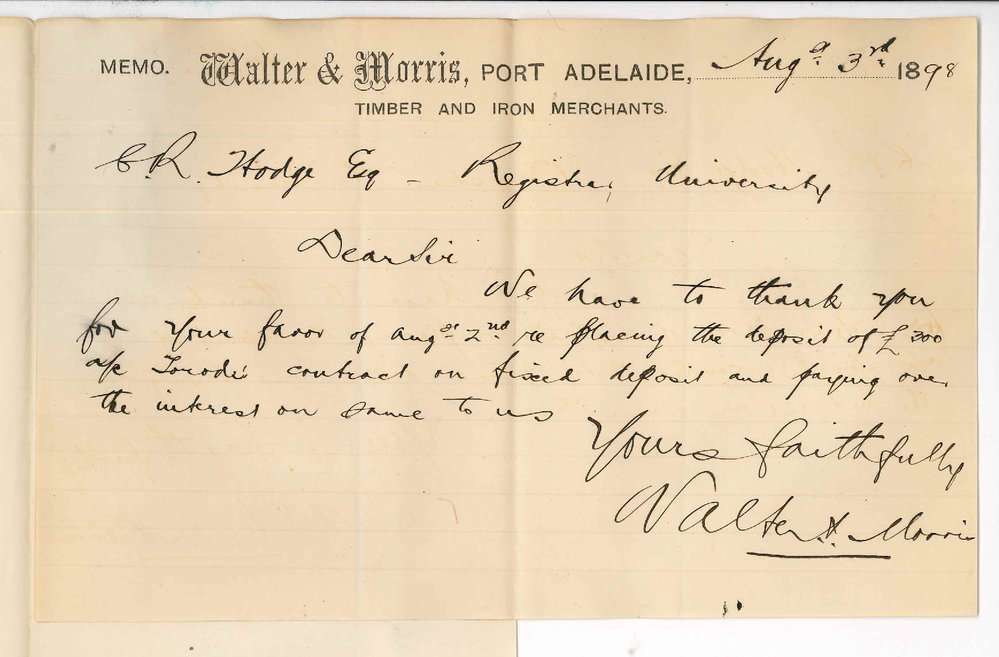 MEMO. Walter & Morris, PORT ADELAIDE, Augst 3rd 1898
TIMBER AND IRON MERCHANTS.
C.R. Hodge Esq – Registrar, University
Dear Sir
We have to thank you
for your favor of Augst 2nd re placing the deposit of £300
a/c Torode's contract on fixed deposit and paying over
the interest on same to us
Yours faithfully
Walter & Morris